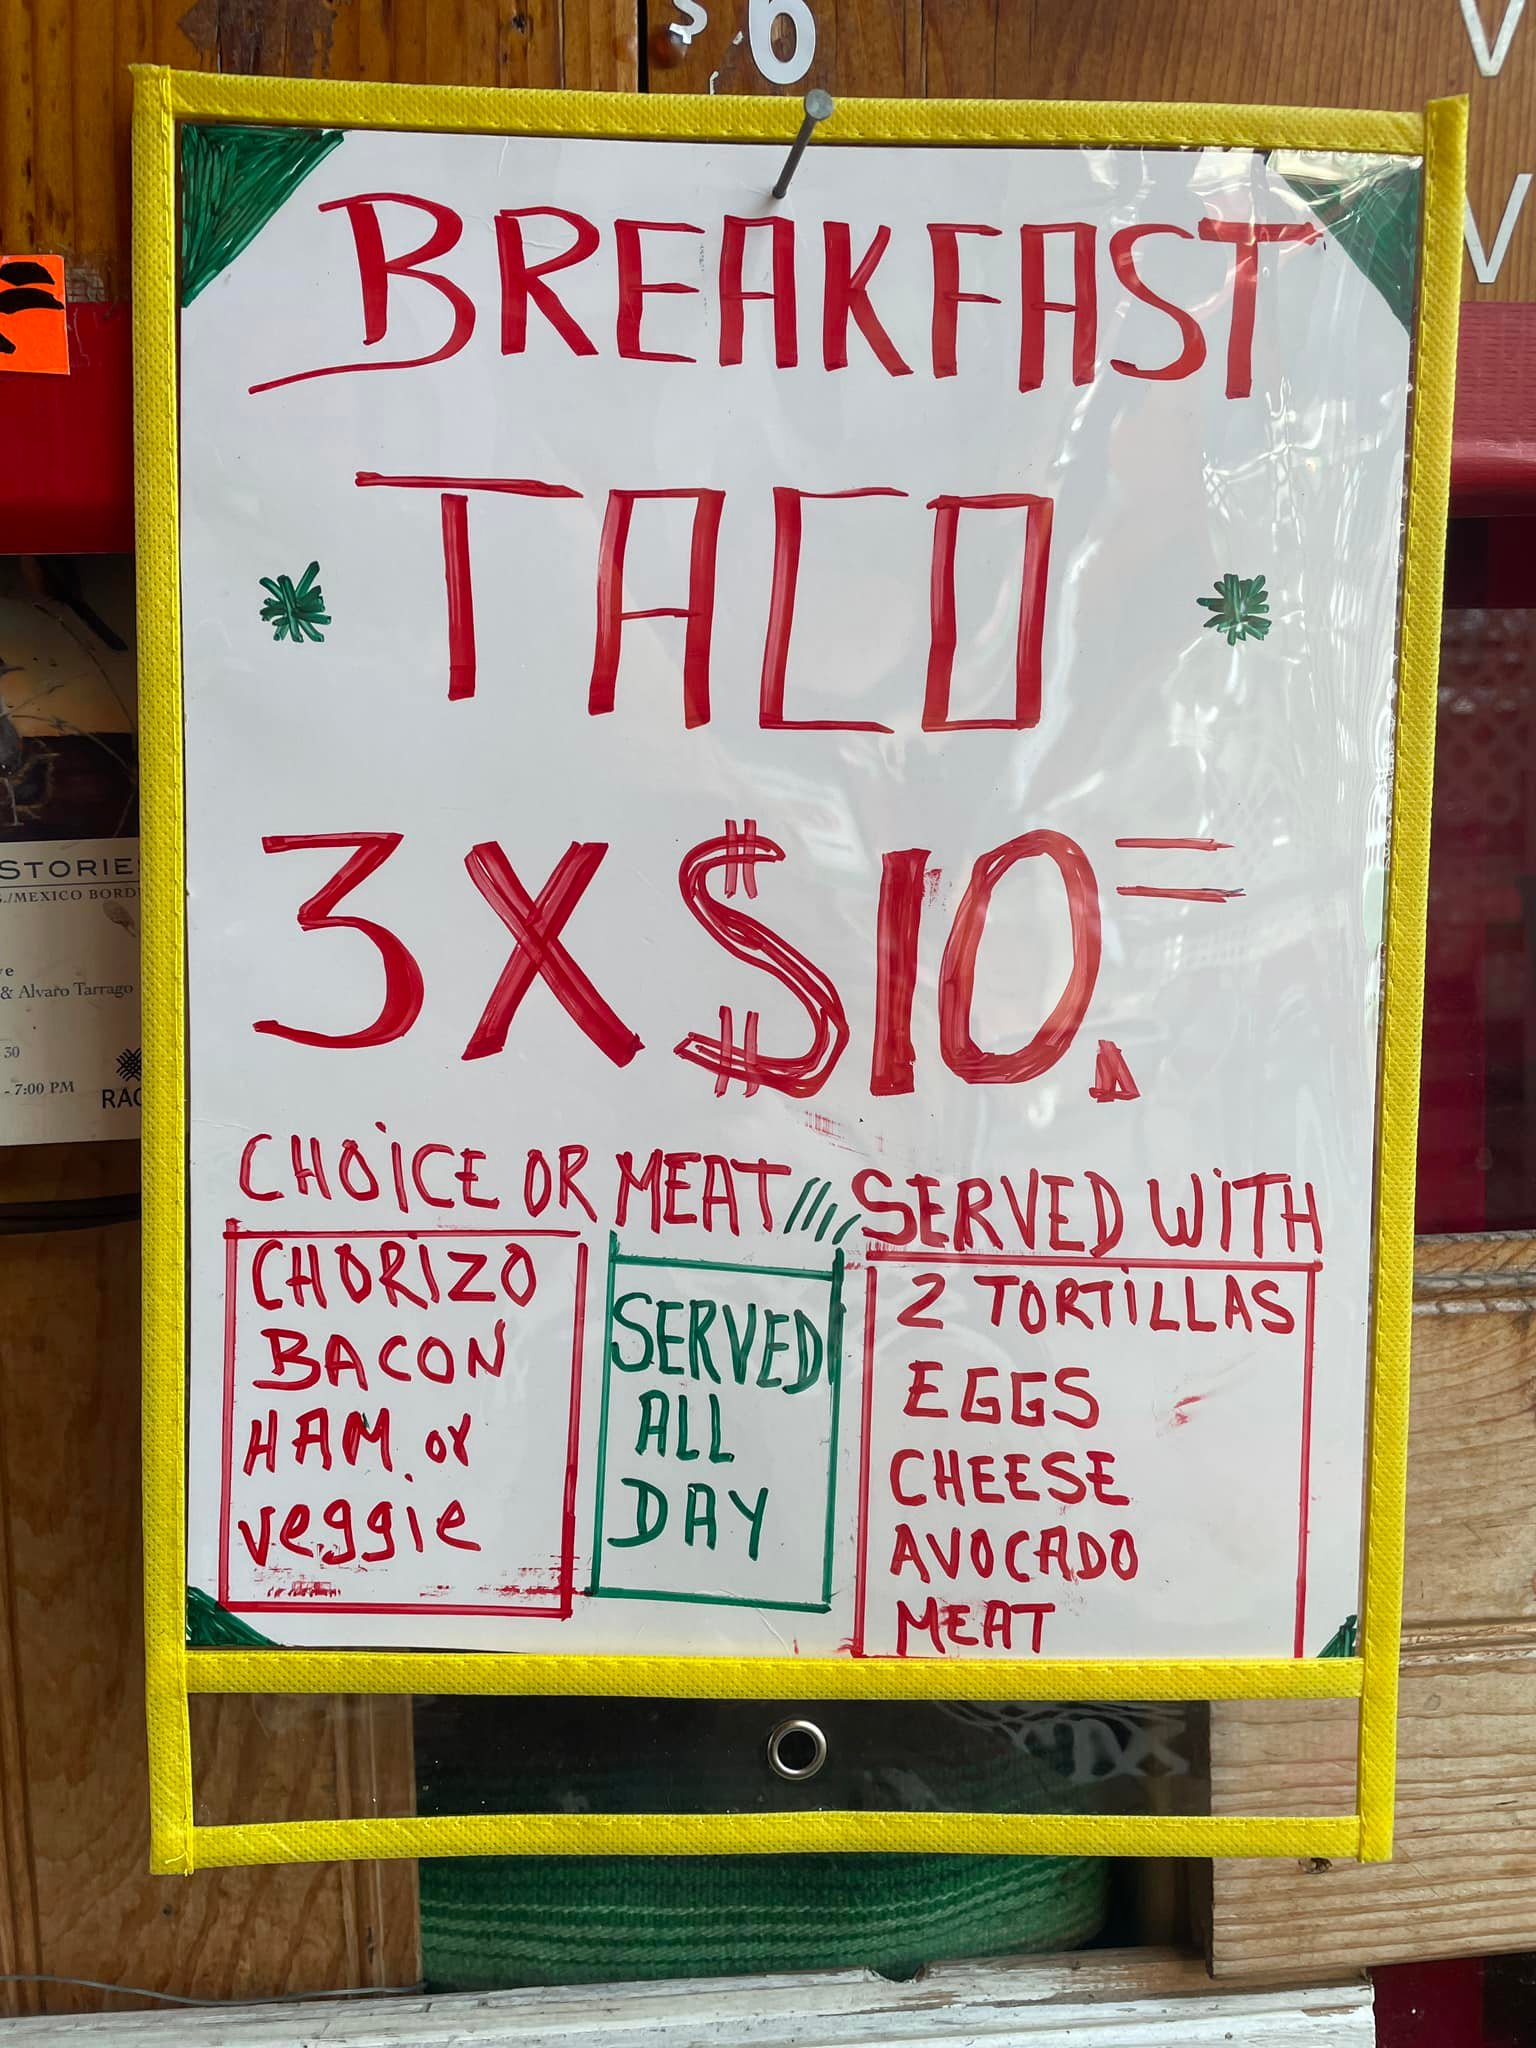 $ 6
V
V
BREAKFAST
TACO
3 X $10.=
CHOICE OR MEAT //// SERVED WITH
CHORIZO
BACON
HAM or
veggie
SERVED
ALL
DAY
2 TORTILLAS
EGGS
CHEESE
AVOCADO
MEAT
STORIE
./MEXICO BORD
& Alvaro Tarrago
30
- 7:00 PM
RAC